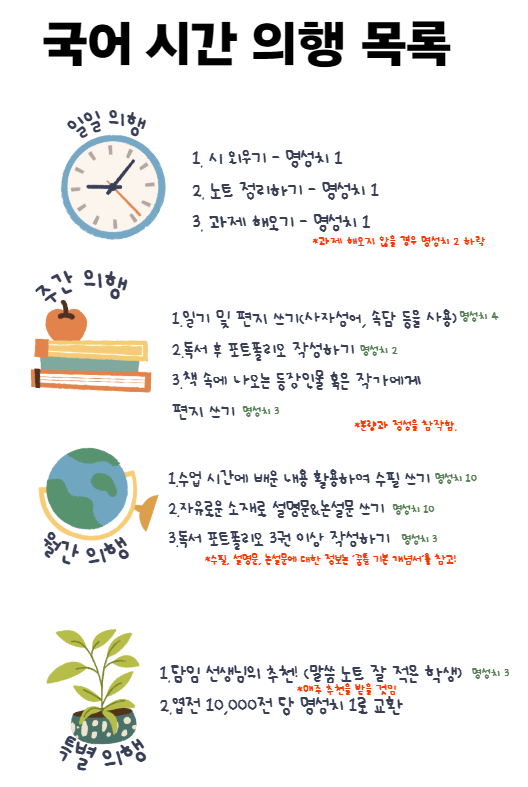 국어 시간 의행 목록
일일 의행
1. 시 외우기 - 명성치 1
2. 노트 정리하기 - 명성치 1
3. 과제 해오기 - 명성치 1
*과제 해오지 않을 경우 명성치 2 하락
주간 의행
1.일기 및 편지 쓰기(사자성어, 속담 등을 사용) 명성치 4
2.독서 후 포트폴리오 작성하기 명성치 2
3.책 속에 나오는 등장인물 혹은 작가에게
편지 쓰기 명성치 3
*분량과 정성을 참작함.
월간 의행
1.수업 시간에 배운 내용 활용하여 수필 쓰기 명성치 10
2.자유로운 소재로 설명문&논설문 쓰기 명성치 10
3.독서 포트폴리오 3권 이상 작성하기 명성치 3
*수필, 설명문, 논설문에 대한 정보는 '꿈틀 기본 개념서'를 참고!
특별 의행
1.담임 선생님의 추천! (말씀 노트 잘 적은 학생) 명성치 3
*매주 추천을 받을 것임
2.엽전 10,000전 당 명성치 1로 교환